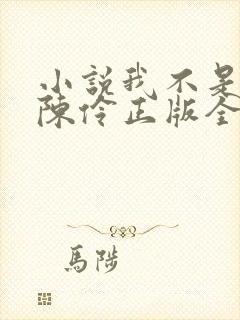 小說我不是
陳伶正版全
馬陟